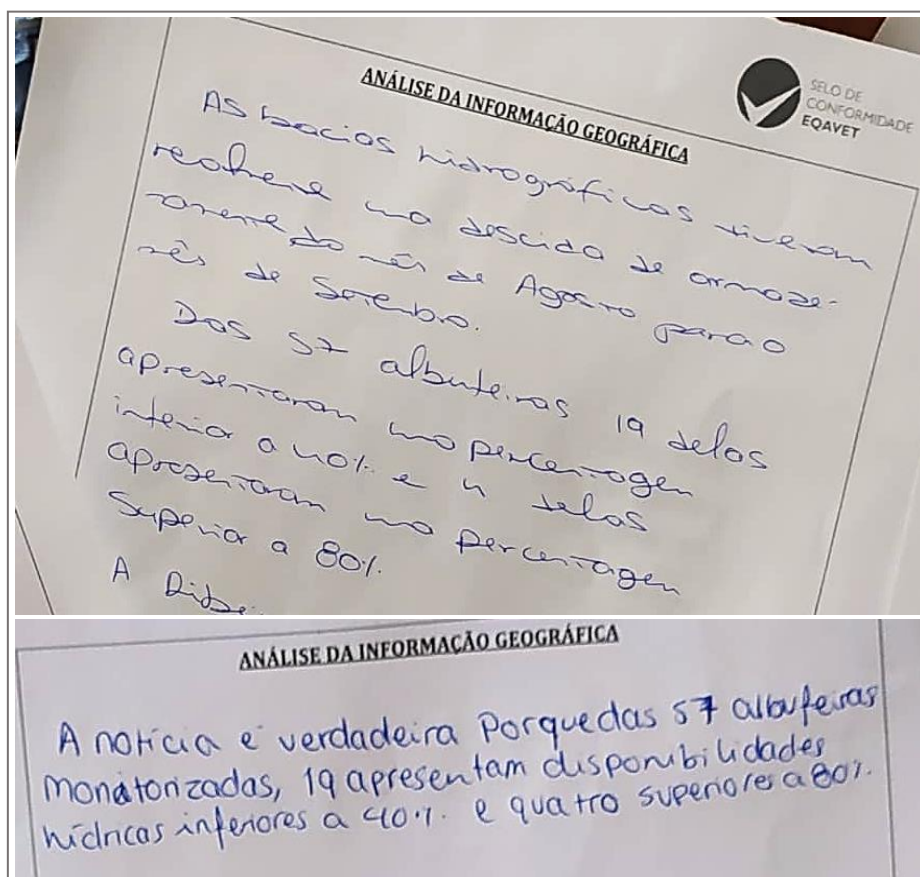 ANÁLISE DA INFORMAÇÃO GEOGRÁFICA
SELO DE
CONFORMIDADE
EQAVET
As bacias hidrográficas tiveram
na descida de armaze-
do mês de Agosto para o
mês de Setembro.
Das 57 albufeiras 19 delas
apresentaram percentagem
inferior a 40% e 4 delas
apresentaram percentagem
Superior a 80%.
A
ANÁLISE DA INFORMAÇÃO GEOGRÁFICA
A notícia é verdadeira porque das 57 albufeiras
monitorizadas, 19 apresentam disponibilidades
hídricas inferiores a 40%. e quatro superiores a 80%.